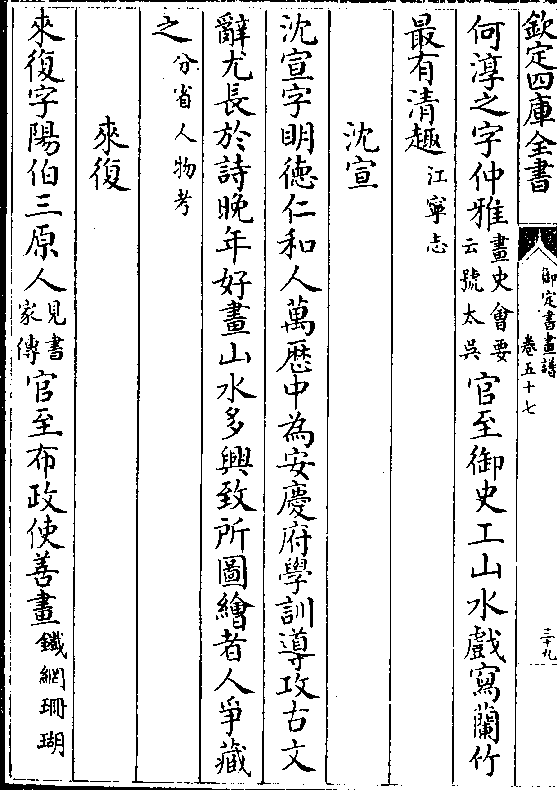 欽定四庫全書
御定書畫譜
卷五十七
三十九
何淳之字仲雅畫史會要云號太吳官至御史工山水戲寫蘭竹
最有清趣江寧志
沈宣
沈宣字明德仁和人萬厯中為安慶府學訓導攻古文
辭尤長於詩晚年好畫山水多興致所圖繪者人爭藏
之分省人物考
來復
來復字陽伯三原人見書家傳官至布政使善畫鐵網珊瑚